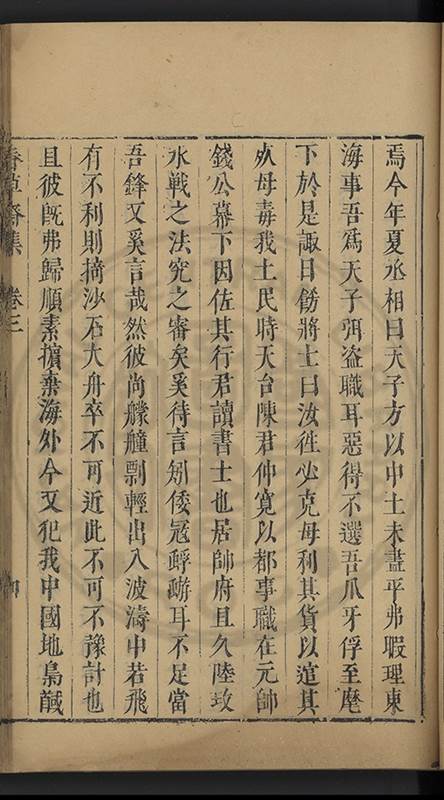 焉今年夏丞相曰天子方以中土未盡平弗暇理東
海事吾爲天子弭盜職耳惡得不選吾爪牙俘至麾
下於是諏日飭將士曰汝徃必克毋利其貨以逭其
死毋毒我土民時天台陳君仲寛以都事職在元帥
錢公幕下因佐其行君讀書士也居帥府且久陸攻
水戰之法究之審矣奚待言矧倭冦蜉蝣耳不足當
吾鋒又奚言哉然彼尚艨艟剽輕出入波濤中若飛
有不利則摘沙石大舟卒不可近此不可不豫計也
且彼旣弗歸順素擯棄海外今又犯我中國地梟馘
春草齋集 卷三 四